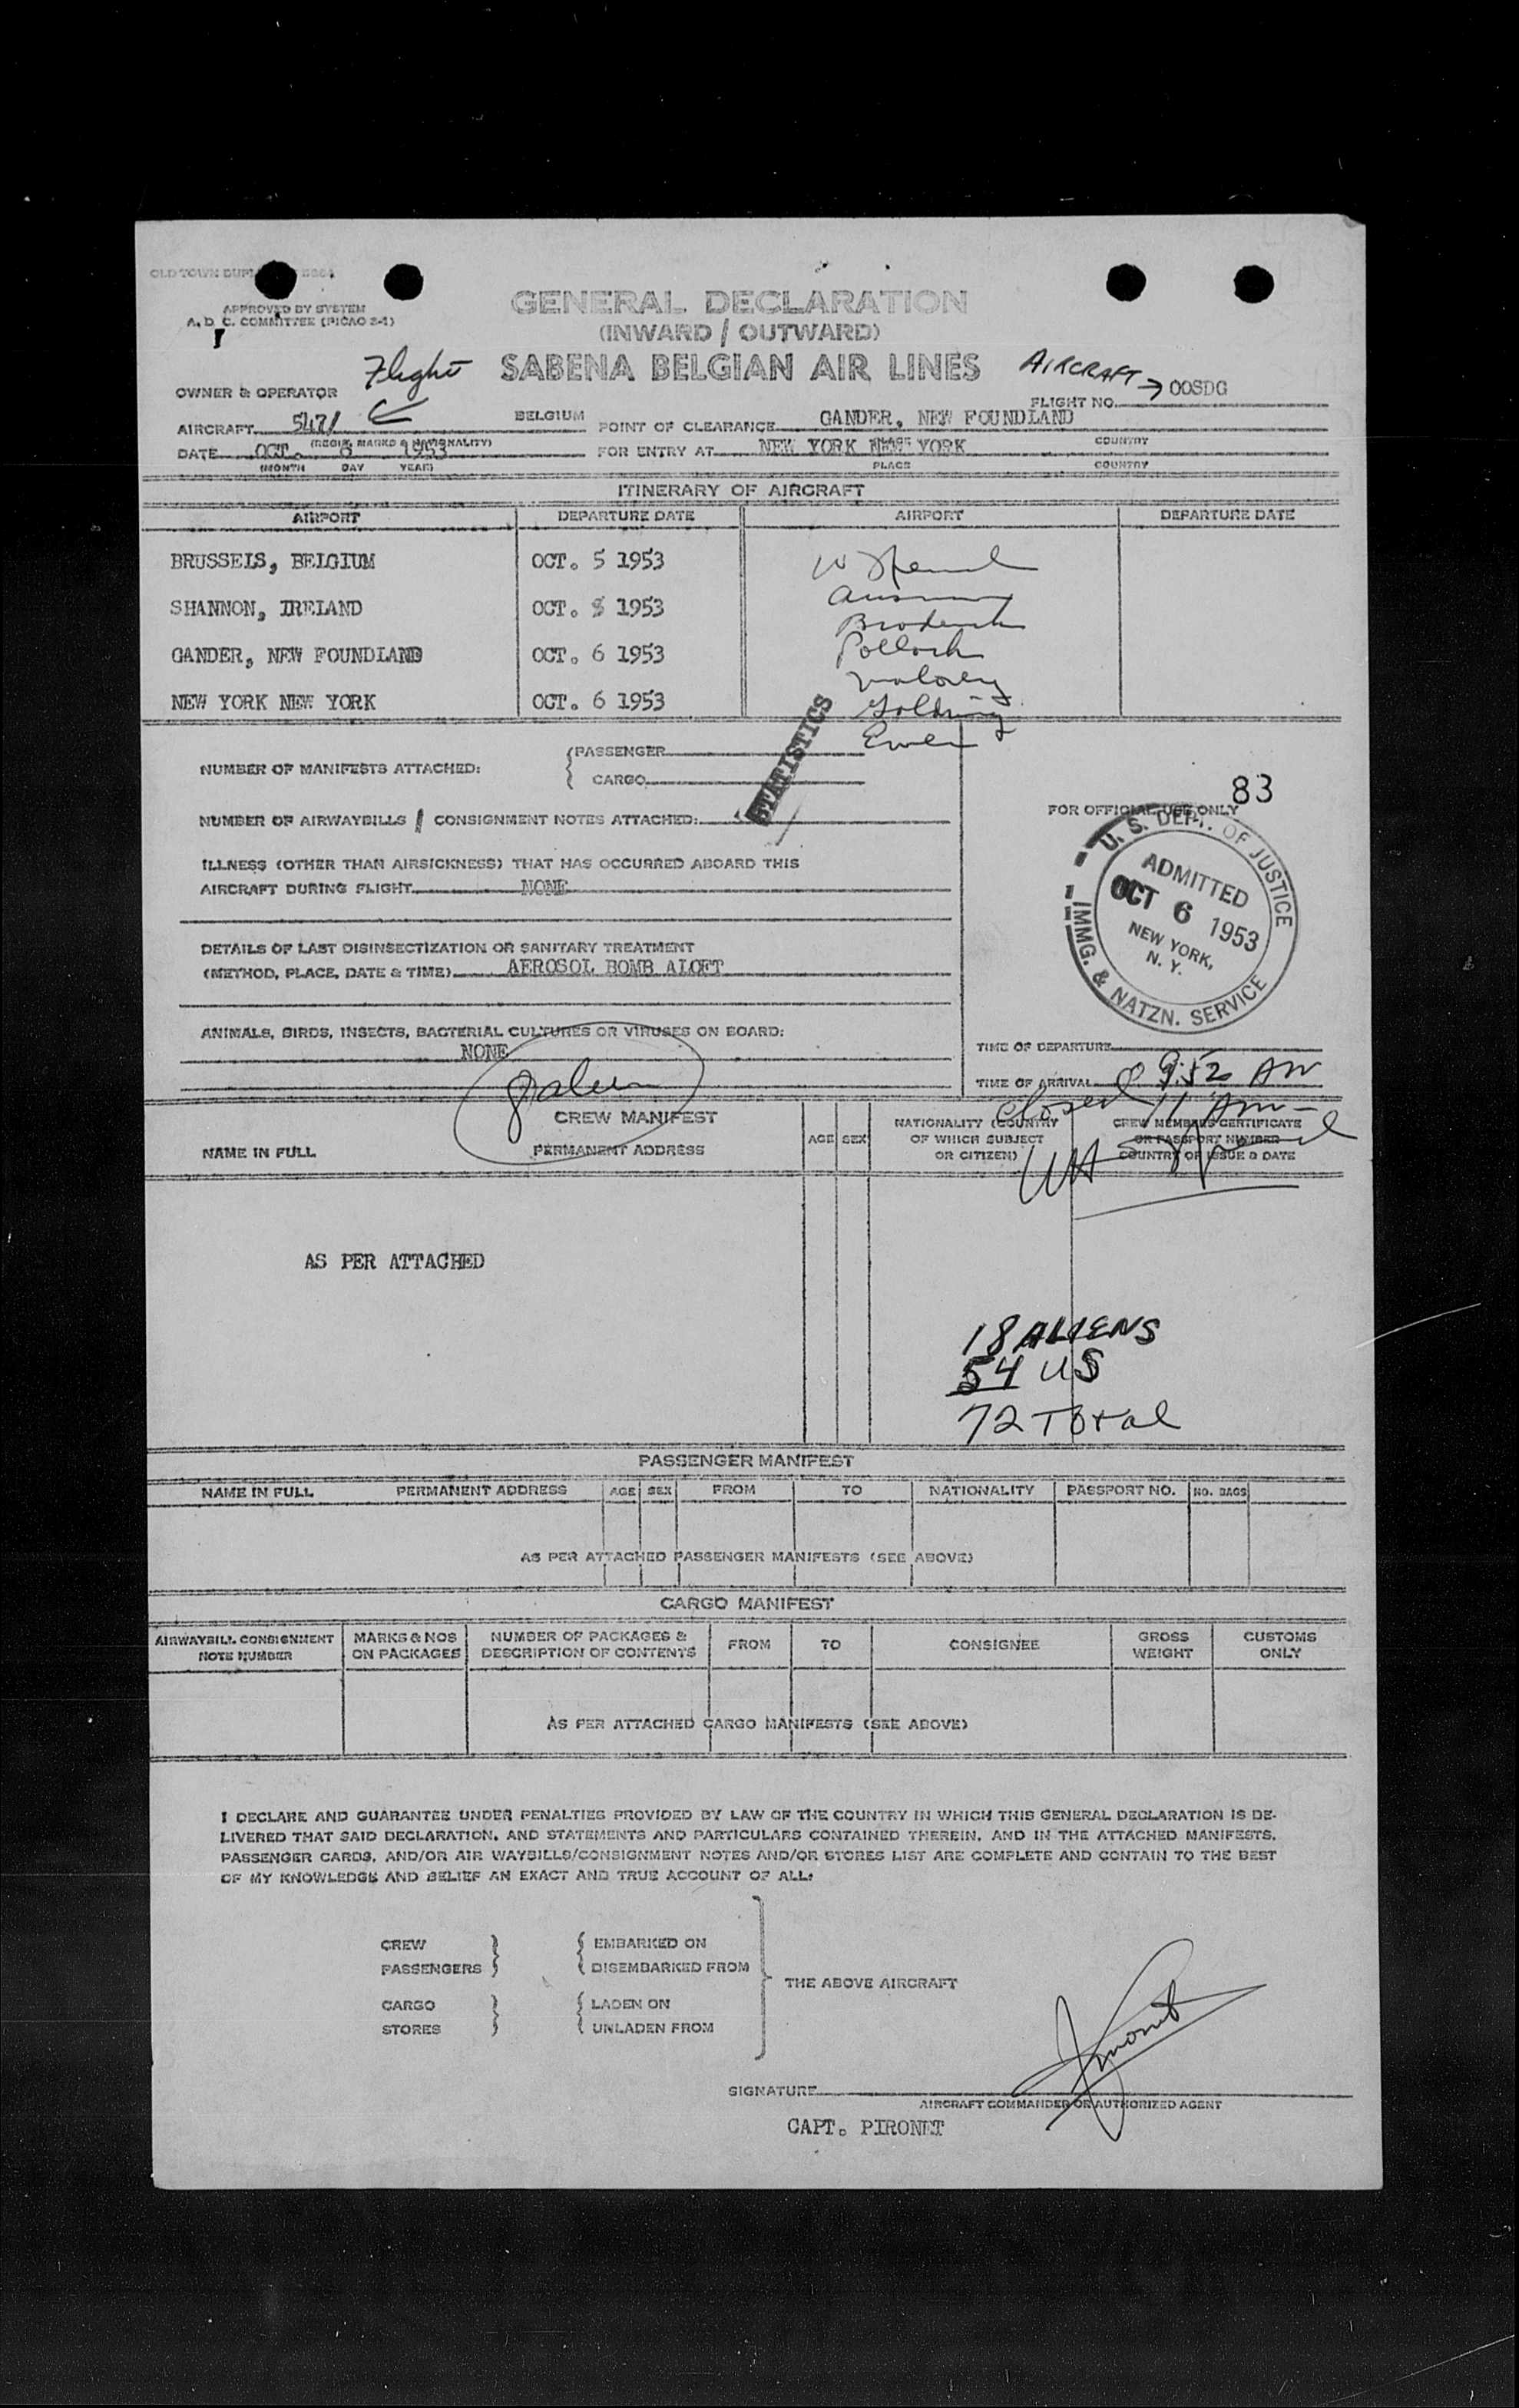 APPROVED BY SYSTEM
A. D. C. COMMITTEE (PICAO 2-1)
GENERAL DECLARATION
(INWARD / OUTWARD)
SABENA BELGIAN AIR LINES
Flight
AIRCRAFT → OOSDG
OWNER & OPERATOR
FLIGHT NO.
AIRCRAFT 547/
BELGIUM
(REGIS. MARKS & NATIONALITY)
POINT OF CLEARANCE GANDER, NEW FOUNDLAND
PLACE COUNTRY
DATE OCT. 6 1953
(MONTH DAY YEAR)
FOR ENTRY AT NEW YORK NEW YORK
PLACE COUNTRY
ITINERARY OF AIRCRAFT
AIRPORT DEPARTURE DATE AIRPORT DEPARTURE DATE
BRUSSELS, BELGIUM OCT. 5 1953
SHANNON, IRELAND OCT. 1953
Broderick
GANDER, NEW FOUNDLAND OCT. 6 1953 Pollock
Maloney
NEW YORK NEW YORK OCT. 6 1953 Goldring
Ewen
STATISTICS
NUMBER OF MANIFESTS ATTACHED:
PASSENGER
CARGO
83
FOR OFFICIAL USE ONLY
NUMBER OF AIRWAYBILLS / CONSIGNMENT NOTES ATTACHED:
U. S. DEPT. OF JUSTICE
ADMITTED
OCT 6 1953
NEW YORK,
N. Y.
IMMG. & NATZN. SERVICE
ILLNESS (OTHER THAN AIRSICKNESS) THAT HAS OCCURRED ABOARD THIS
AIRCRAFT DURING FLIGHT NONE
DETAILS OF LAST DISINSECTIZATION OR SANITARY TREATMENT
(METHOD, PLACE, DATE & TIME) AEROSOL BOMB ALOFT
ANIMALS, BIRDS, INSECTS, BACTERIAL CULTURES OR VIRUSES ON BOARD:
NONE
TIME OF DEPARTURE
TIME OF ARRIVAL 9:52 AM
Closed 11 Am
CREW MANIFEST
NAME IN FULL
PERMANENT ADDRESS
AGE SEX
NATIONALITY (COUNTRY
OF WHICH SUBJECT
OR CITIZEN)
CREW MEMBERS CERTIFICATE
OR PASSPORT NUMBER
COUNTRY OF ISSUE & DATE
AS PER ATTACHED
18 ALIENS
54 US
72 Total
PASSENGER MANIFEST
NAME IN FULL PERMANENT ADDRESS AGE SEX FROM TO NATIONALITY PASSPORT NO. NO. BAGS
AS PER ATTACHED PASSENGER MANIFESTS (SEE ABOVE)
CARGO MANIFEST
AIRWAYBILL CONSIGNMENT
NOTE NUMBER
MARKS & NOS
ON PACKAGES
NUMBER OF PACKAGES &
DESCRIPTION OF CONTENTS
FROM TO CONSIGNEE
GROSS
WEIGHT
CUSTOMS
ONLY
AS PER ATTACHED CARGO MANIFESTS (SEE ABOVE)
I DECLARE AND GUARANTEE UNDER PENALTIES PROVIDED BY LAW OF THE COUNTRY IN WHICH THIS GENERAL DECLARATION IS DE-
LIVERED THAT SAID DECLARATION, AND STATEMENTS AND PARTICULARS CONTAINED THEREIN, AND IN THE ATTACHED MANIFESTS,
PASSENGER CARDS, AND/OR AIR WAYBILLS/CONSIGNMENT NOTES AND/OR STORES LIST ARE COMPLETE AND CONTAIN TO THE BEST
OF MY KNOWLEDGE AND BELIEF AN EXACT AND TRUE ACCOUNT OF ALL:
CREW
PASSENGERS
EMBARKED ON
DISEMBARKED FROM
THE ABOVE AIRCRAFT
CARGO
STORES
LADEN ON
UNLADEN FROM
SIGNATURE
AIRCRAFT COMMANDER OR AUTHORIZED AGENT
CAPT. PIRONET